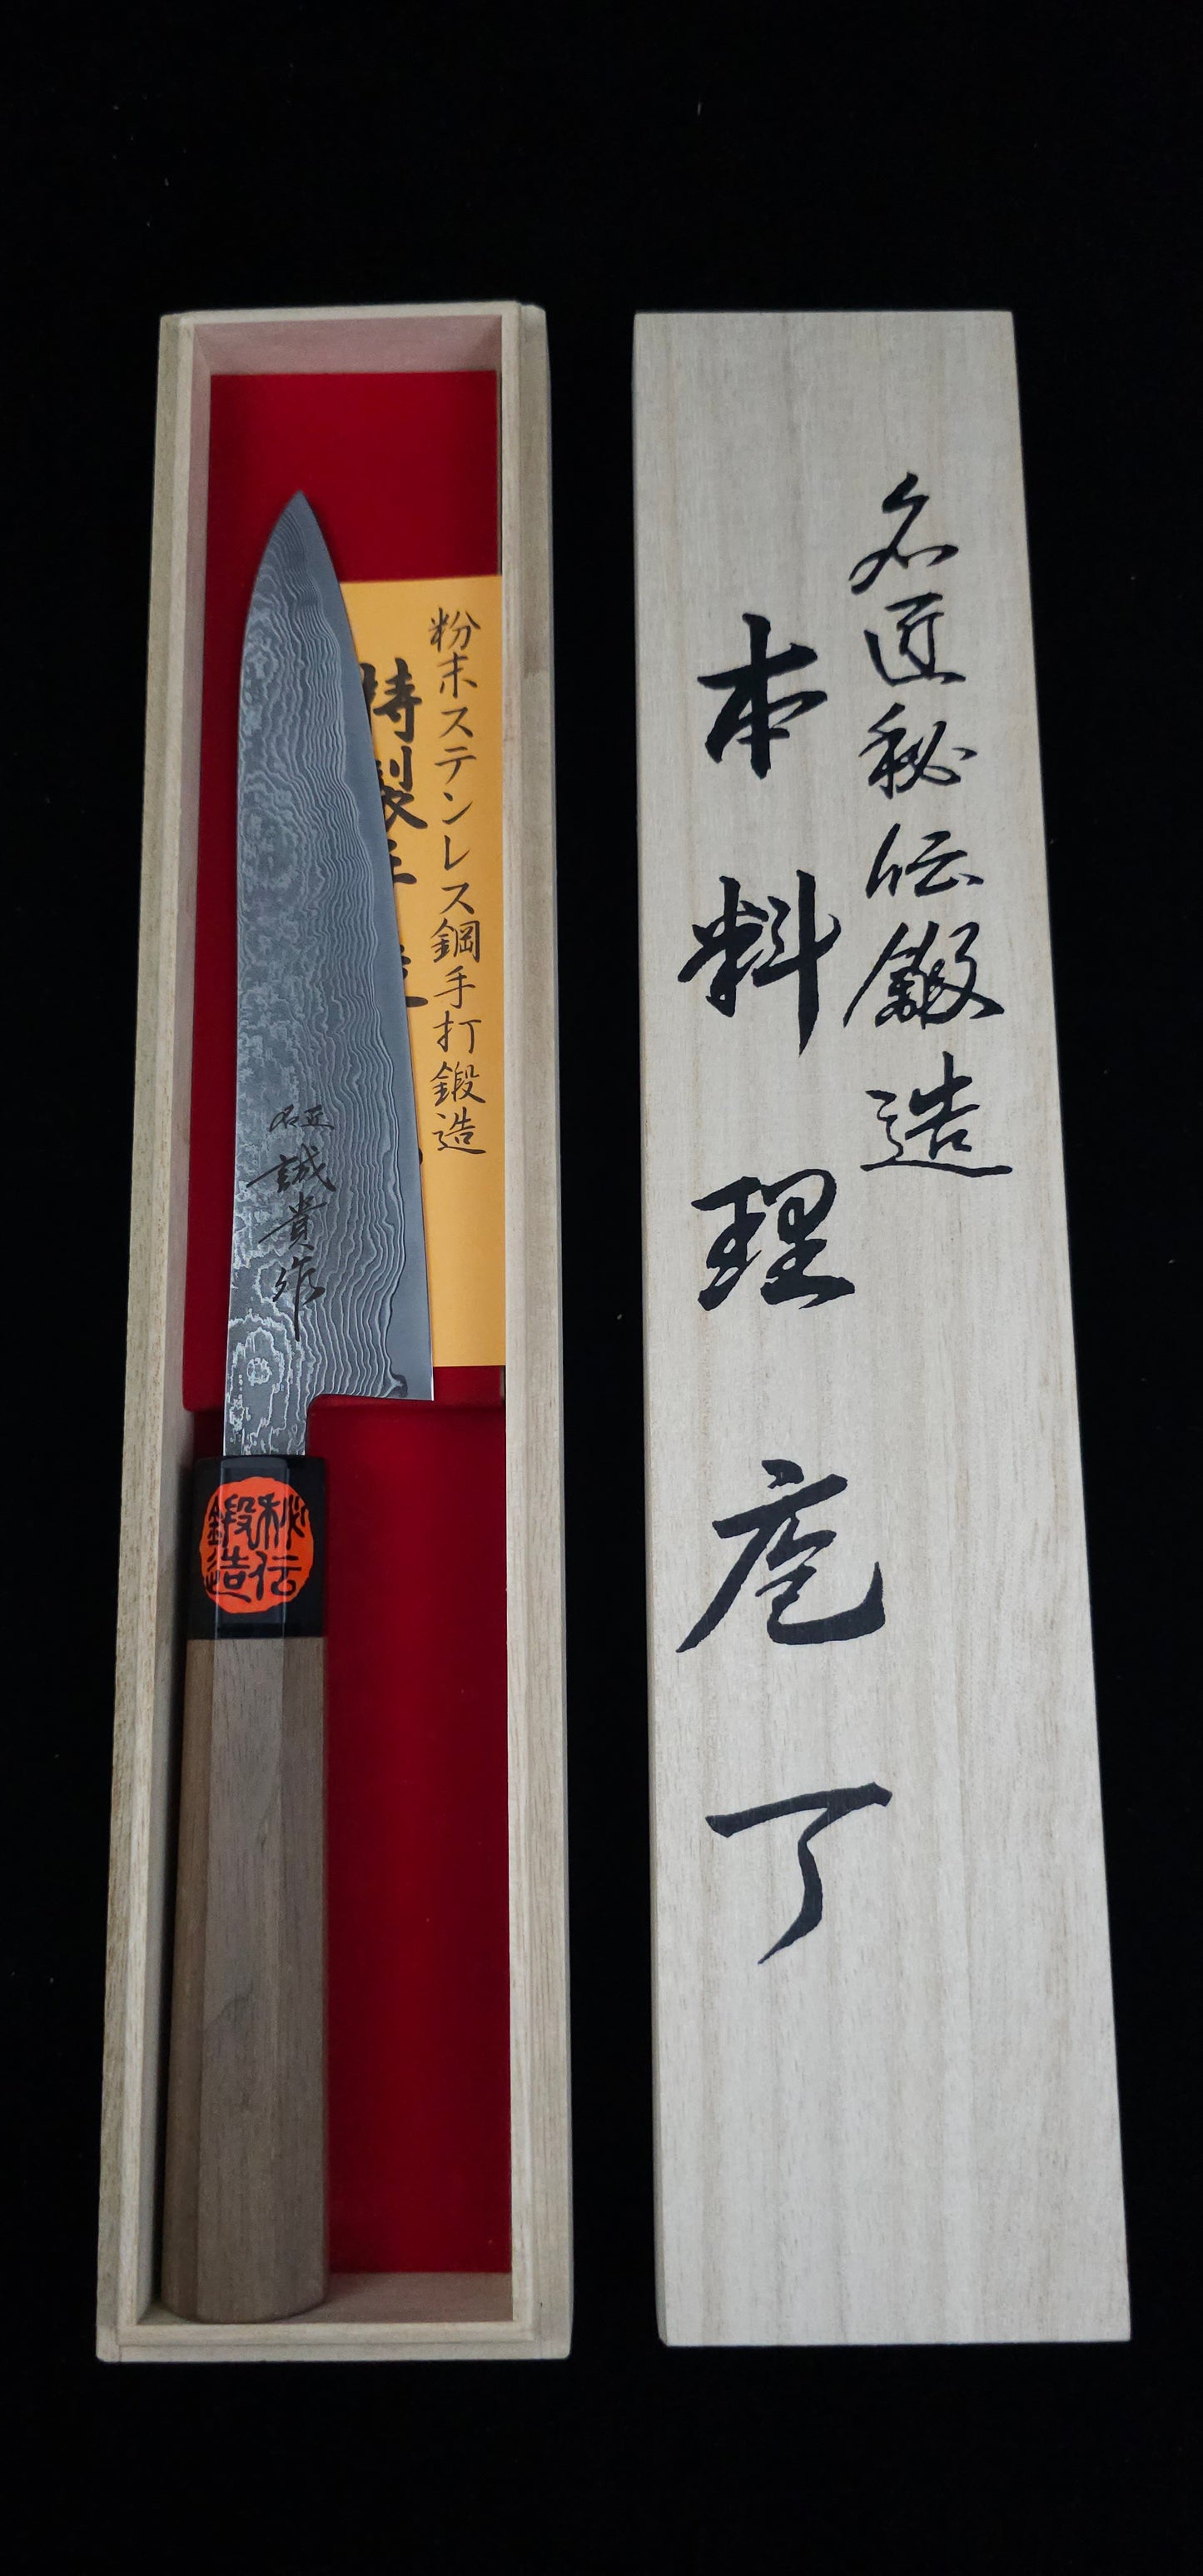 粉末ステンレス鋼手打鍛造
特製
名匠
誠貴作
秘伝
鍛造
名匠秘伝鍛造
本料理庖丁